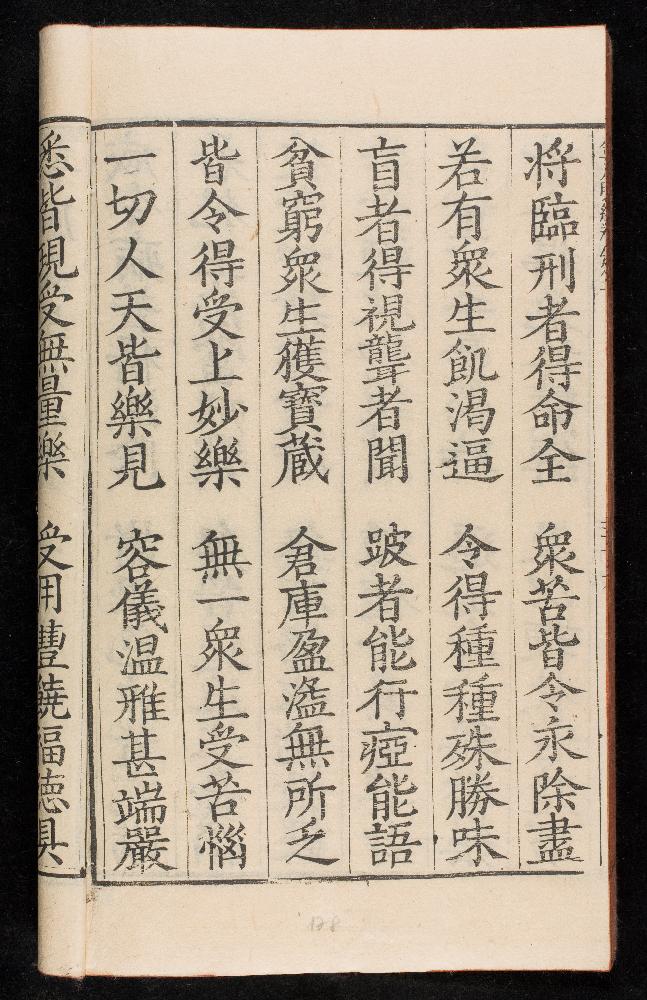 将臨刑者得命全　衆苦皆令永除盡
若有衆生飢渴逼　令得種種殊勝味
盲者得視聾者聞　跛者能行瘂能語
貧窮衆生獲寶蔵　倉庫盈溢無所乏
皆令得受上妙樂　無一衆生受苦惱
一切人天皆樂見　容儀温雅甚端嚴
悉皆現受無量樂　受用豐饒福徳具
128